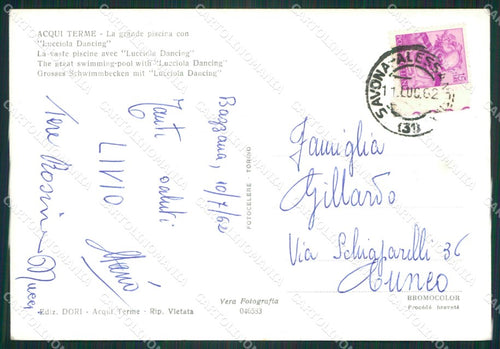 ACQUI TERME - La grande piscina con
"Lucciola Dancing"
La vaste piscine avec "Lucciola Dancing"
The great swimming-pool with "Lucciola Dancing"
Grosses Schwimmbecken mit "Lucciola Dancing"
Bazzana, 10/7/62
Tanti saluti
LIVIO
Mario
FOTOCELERE - TORINO
SAVONA-ALESS
11.LUG.62
(31)
Famiglia
Gillardo
Via Schiaparelli 36
Cuneo
Vera Fotografia
046583
BROMOCOLOR
Procédé breveté
Ediz. DORI - Acqui Terme - Rip. Vietata